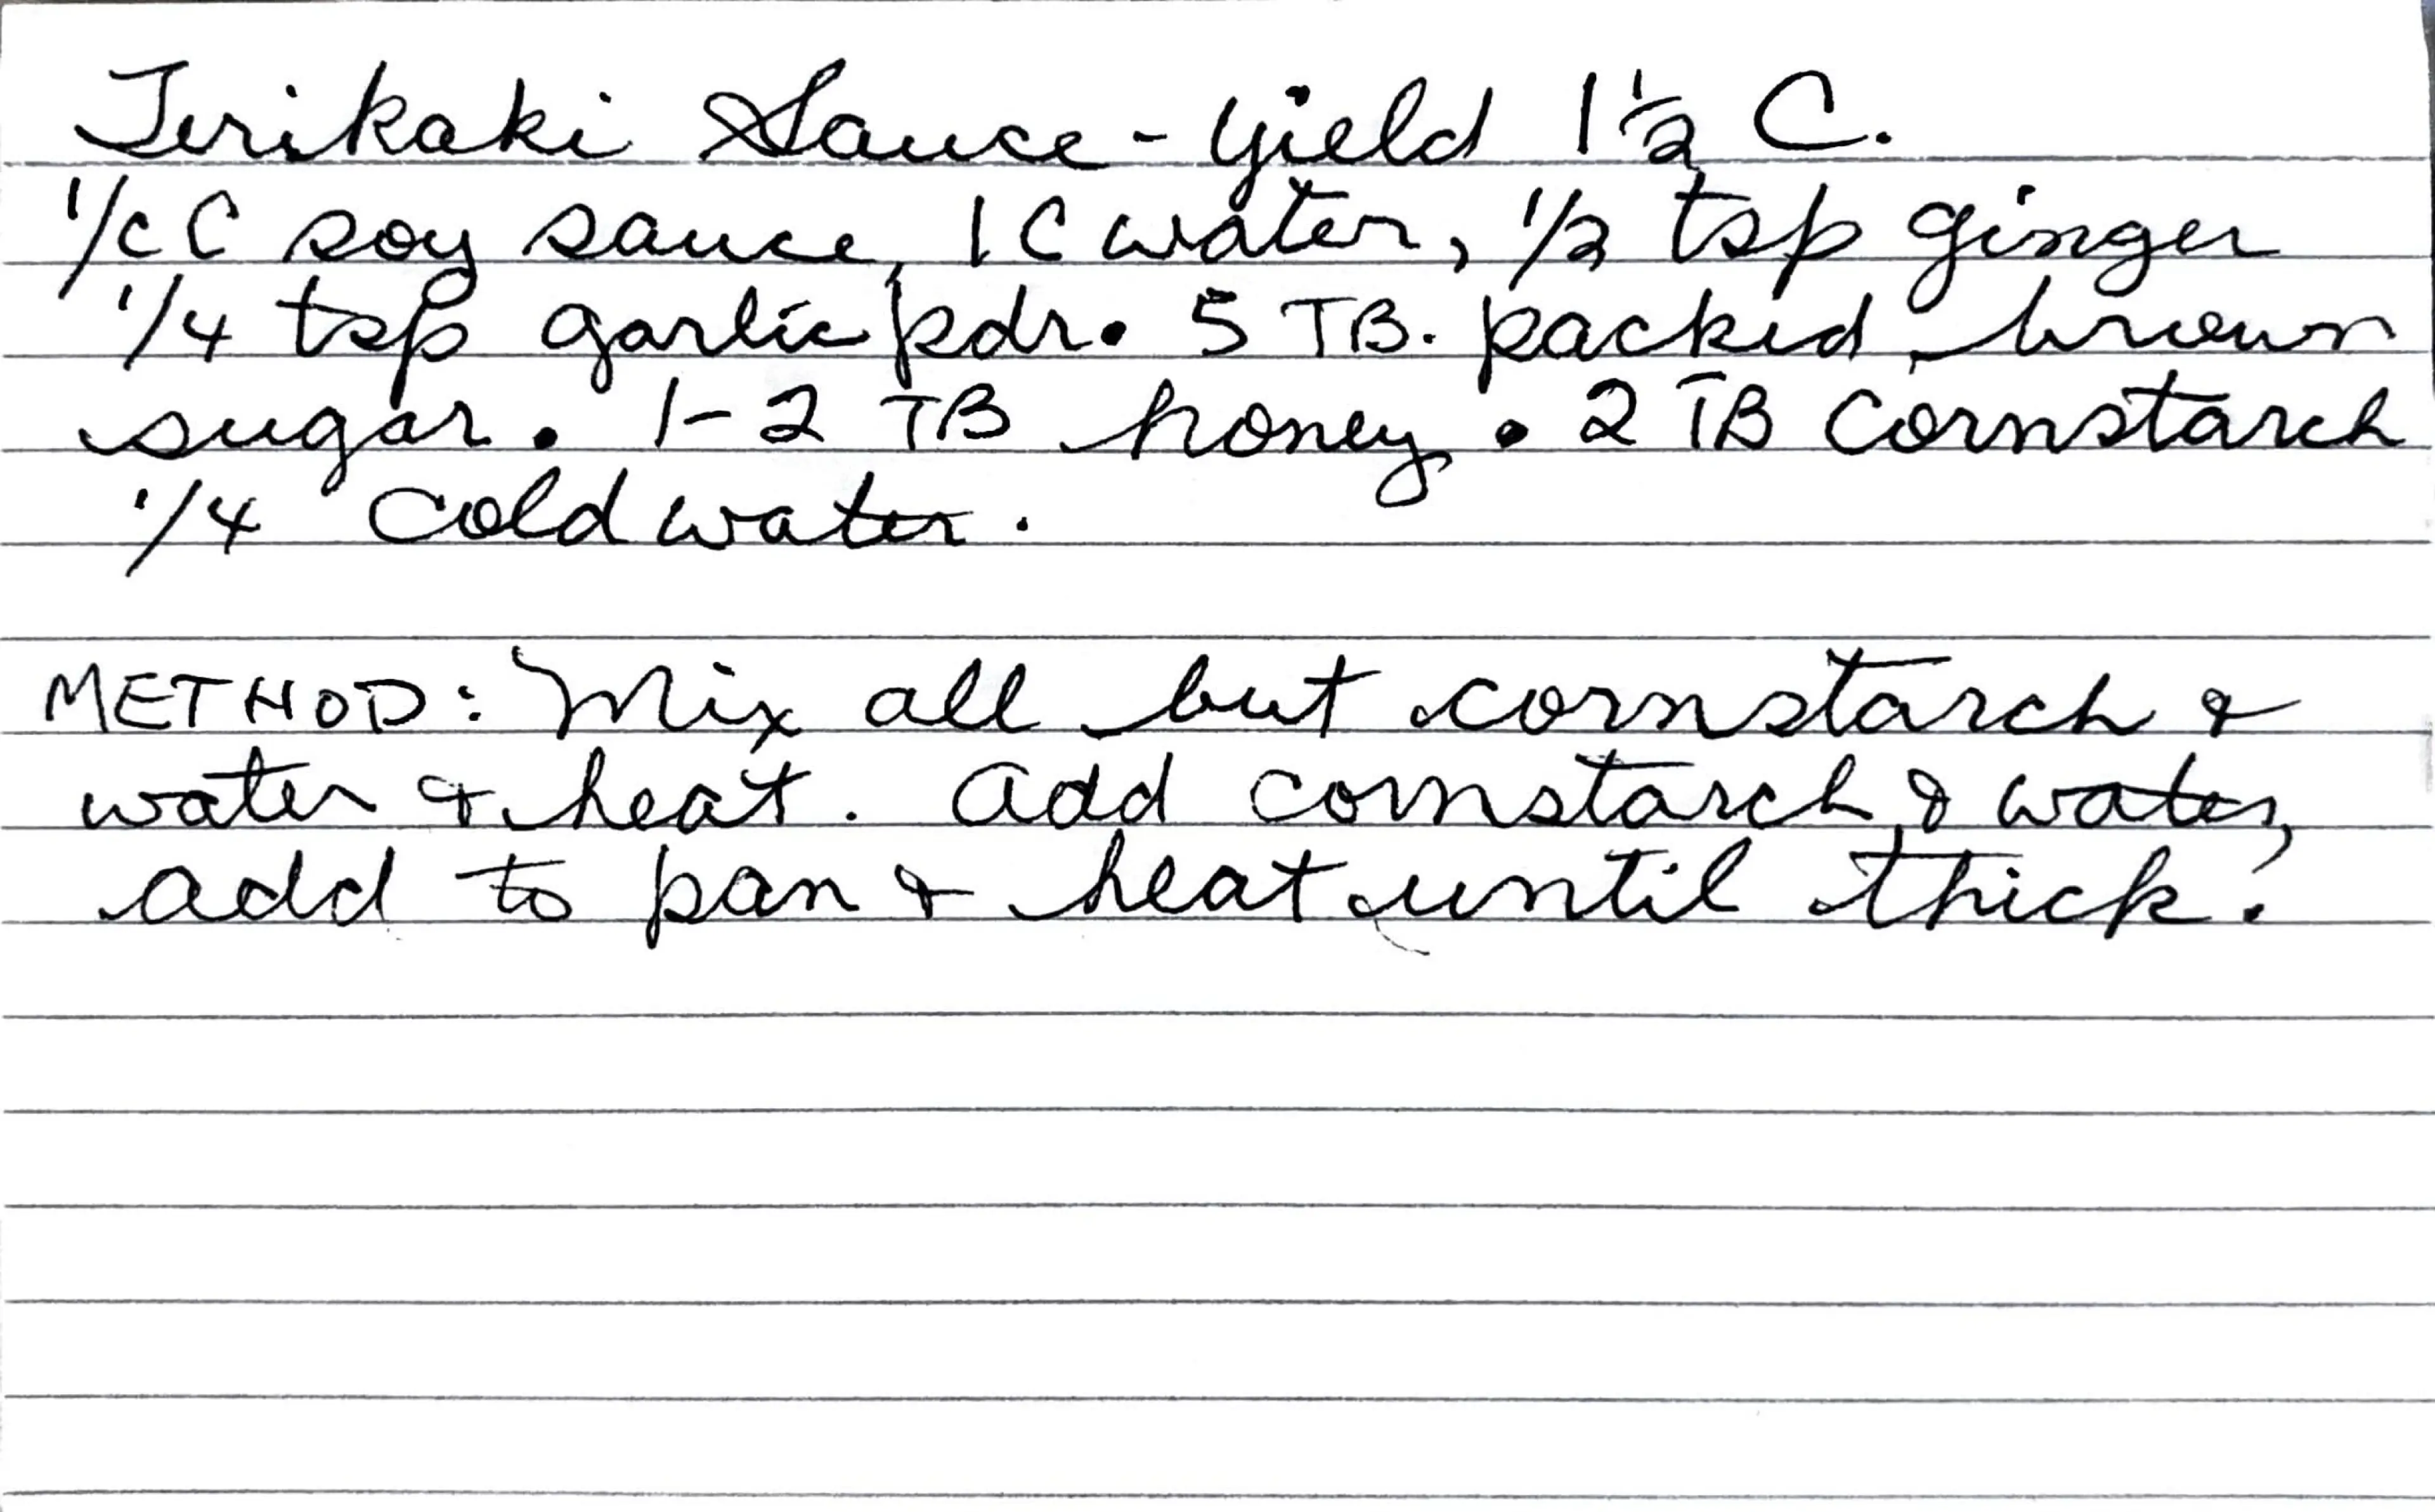 Terikaki Sauce - yield 1 1/2 C.
1/c C soy sauce, 1 C water, 1/2 tsp ginger
1/4 tsp garlic pdr. 5 TB. packed brown
sugar. 1-2 TB honey. 2 TB cornstarch
1/4 cold water.
METHOD: Mix all but cornstarch &
water & heat. Add cornstarch & water,
add to pan & heat until thick.